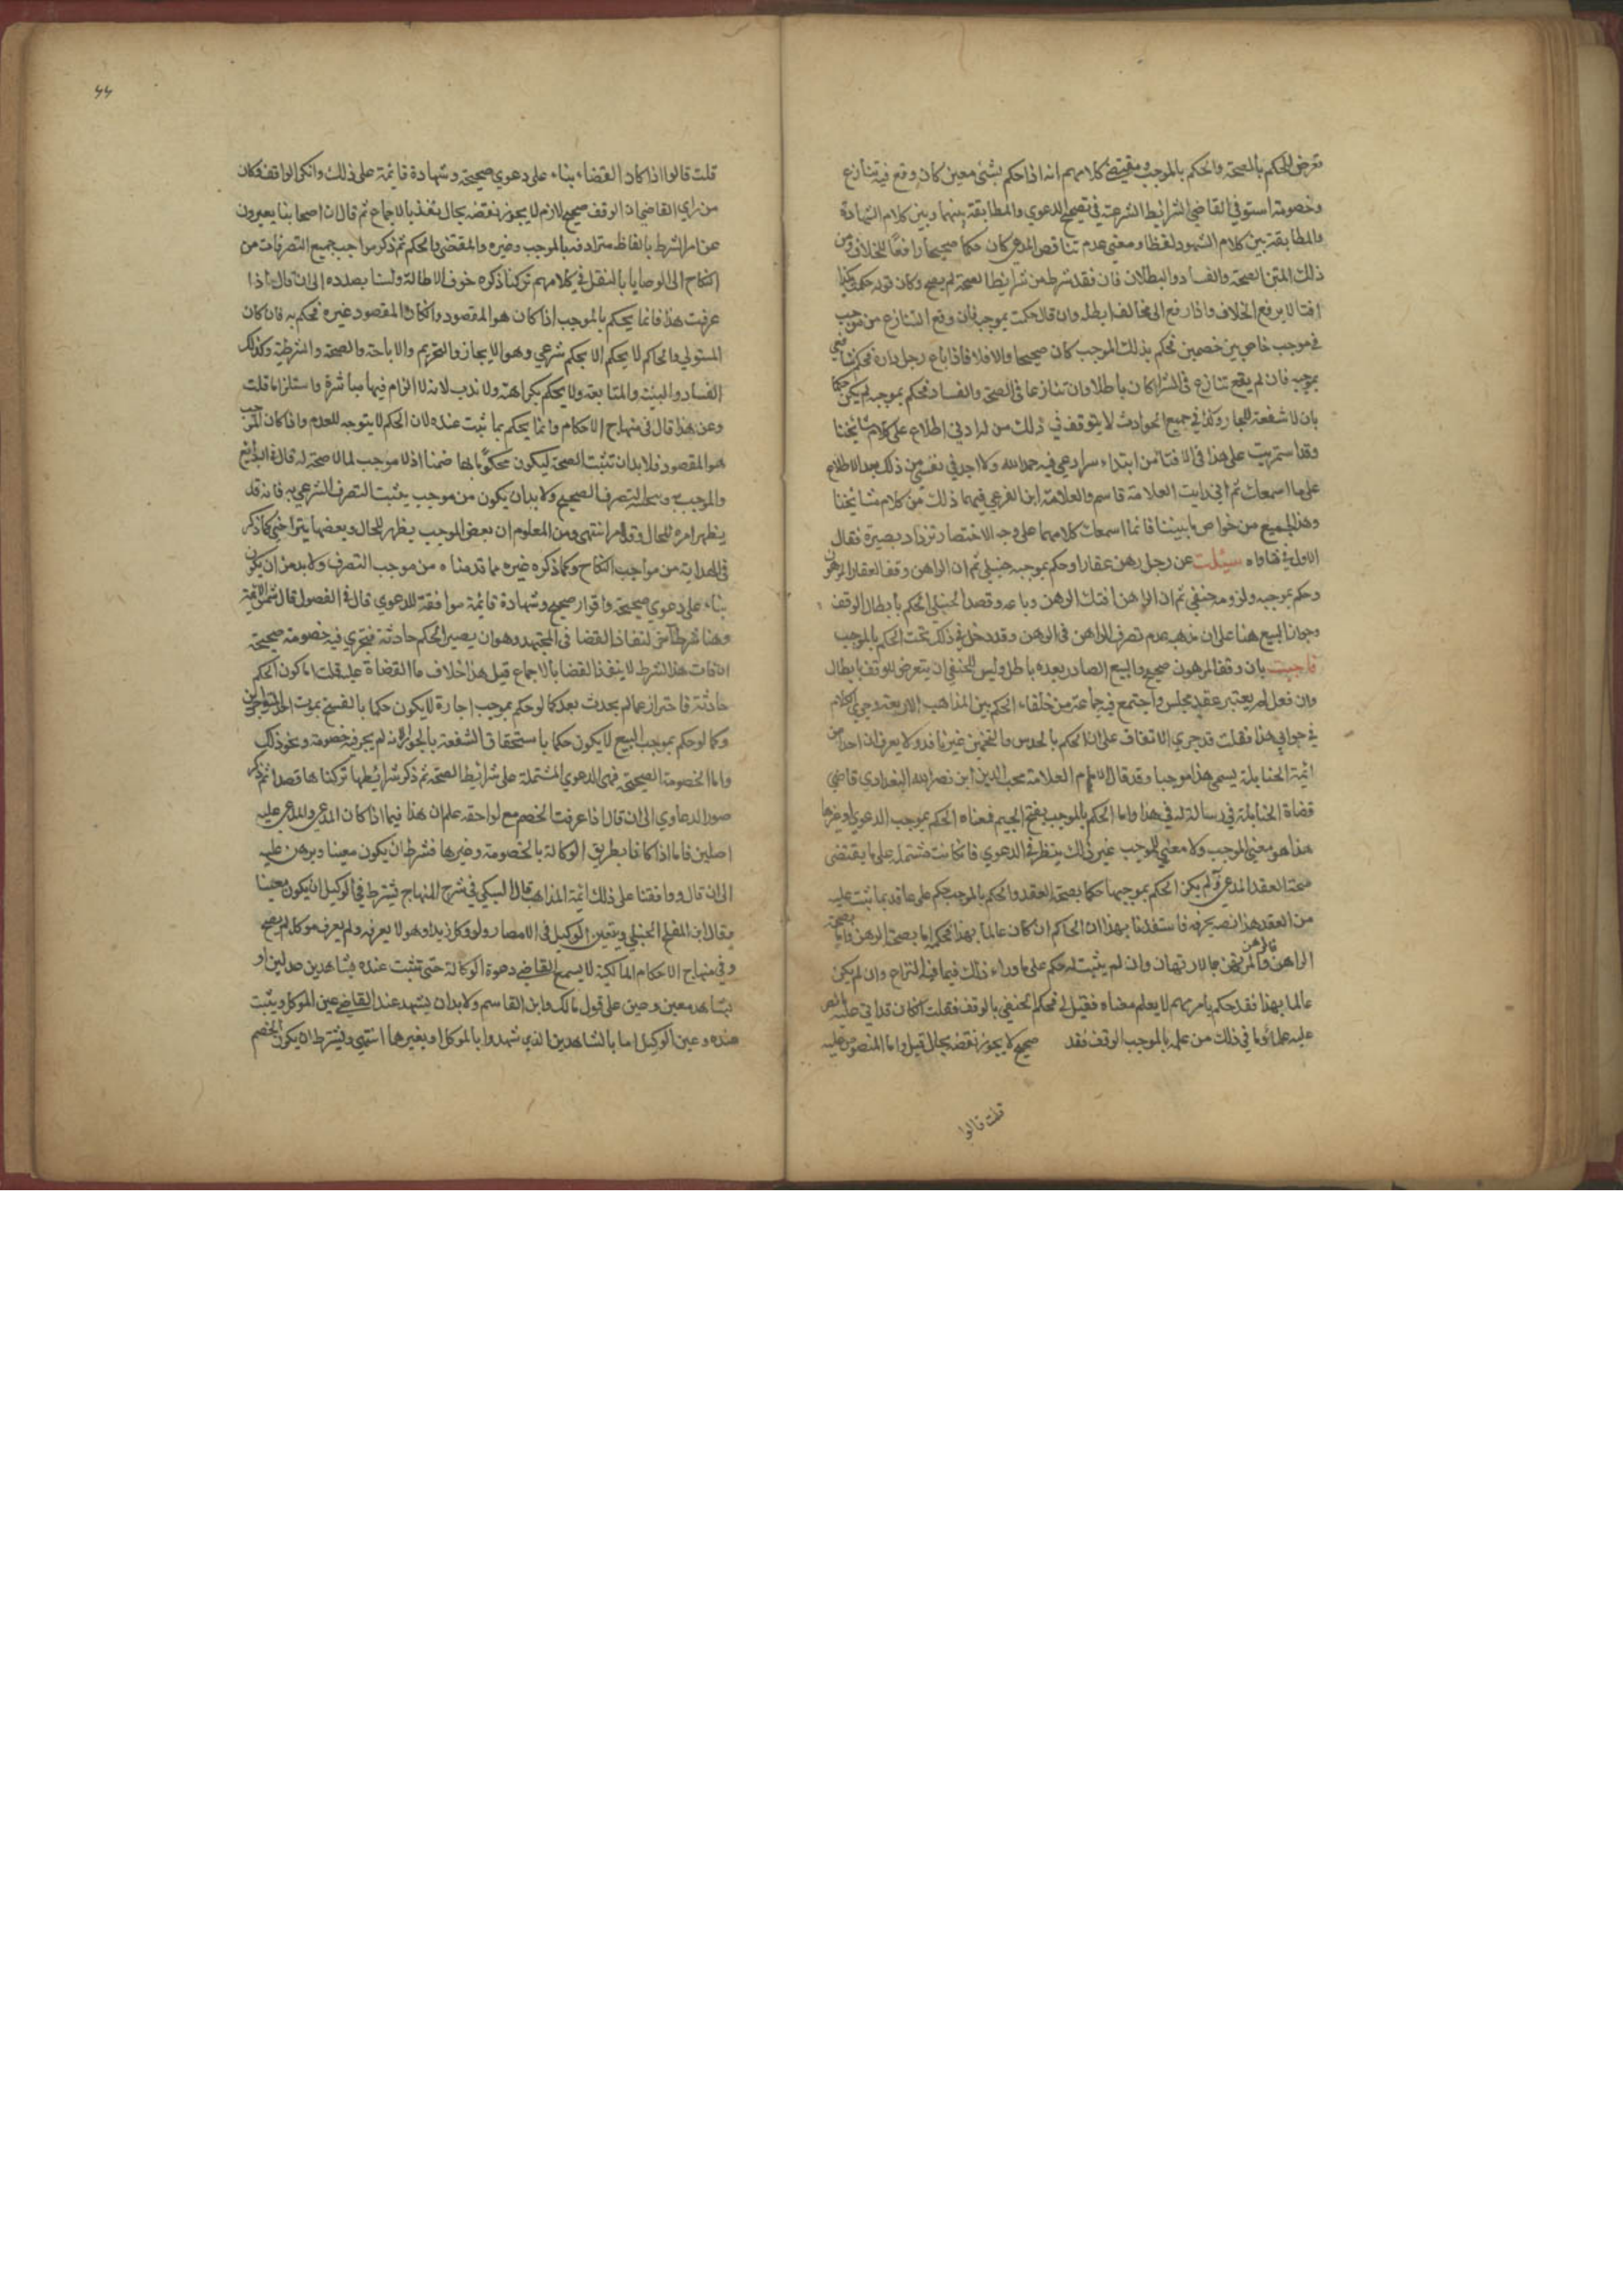 تعرض للحكم بالصحة والحكم بالموجب ومقتضى كلامهم انه اذا حكم بشئ معين كان وقع فيه تنازع
وخصومة استوفى القاضي الشرايط الشرعية في تصحيح الدعوي والمطابقة بينهما وبين كلام الشهادة
والمطابقة بين كلام الشهود لفظا ومعني عدم تناقص المدعي كان حكما صحيحا رافعا للخلاف ومن
ذلك المتن الصحة والفساد والبطلان فان فقد شرط من شرايط الصحة لم يصح وكان قوله حكمت
افتا لا يرفع الخلاف واذا رفع الى مخالف ابطله وان قال حكمت بموجبه فان وقع التنازع من موجب
في موجب خاص بين خصمين فحكم بذلك الموجب كان صحيحا والا فلا فاذا باع رجل داره فحكم شافعي
بموجبه فان لم يقع تنازع في الشرا كان باطلا وان تنازعا في الصحة والفساد فحكم بموجبه لم يكن حكما
بان لا شفعة للجار وكذا في جميع الحوادث لا يتوقف في ذلك من له ادنى اطلاع على كلام مشايخنا
وقد استمريت على هذا في الافتا من ابتداء سرا وعي فيه حمد الله ولا اجد في نفسي من ذلك بعد الاطلاع
على ما اسمعك ثم اني رايت العلامة قاسم والعلامة ابن الغرس فيهما ذلك من كلام مشايخنا
وهذا الجميع من خواص ما بيننا فانما اسمعك كلامهما على وجه الاختصار تزداد بصيرة فقال
الاول في فتاواه سيئلت عن رجل رهن عقارا وحكم بموجبه حنبلي ثم ان الراهن وقف العقار المرهون
وحكم بموجبه ولزومه حنفي ثم ان الراهن افتك الرهن وباعه وقصد الحنبلي الحكم بابطال الوقف
وجواز البيع هنا على ان مذهبه عدم تصرف الراهن في الرهن وقد دخل في ذلك تحت الحكم بالموجب
فاجبت بان وقف المرهون صحيح والبيع الصادر بعده باطل وليس للحنفي ان يتعرض للوقف بابطال
وان فعل لم يعتبر عقد مجلس واجتمع فيه جماعة من خلفاء الحكم بين المذاهب الاربعة وجري الكلام
في جوابي هذا فقلت قد جري الاتفاق على ان الحكم بالحدس والتخمين غير نافذ ولا يعرف ان احدا من
ائمة الحنابلة يسمي هذا موجبا وقد قال الامام العلامة محب الدين ابن نصر الله البغدادي قاضي
قضاة الحنابلة في رسالة له في هذا واما الحكم بالموجب بفتح الجيم فمعناه الحكم بموجب الدعوي او غيرها
هذا هو معني الموجب ولا معني للموجب غير ذلك ينظر في الدعوي فان كانت مشتملة على ما يقتضي
صحة العقد المدعي به لم يكن الحكم بموجبها حكما بصحة العقد والحكم بالموجب حكم على عاقد بما ثبت عليه
من العقد هذا نصه بحرفه فاستفدنا بهذا ان الحاكم ان كان عالما بهذا فحكمه اما بصحة الرهن واما
بصحة
قالرهن
الراهن والمرتهن بالارتهان وان لم يثبت له حكم على ما وراء ذلك فيما فيه النزاع وان لم يكن
عالما بهذا فقد حكم بامر مبهم لا يعلم معناه فقيل لي فحكم الحنفي بالوقف فقلت ان كان
عليه وما في ذلك من علمه بالموجب الوقف فقد صحيح لا يجوز نقضه بحال قيل واما المنصوص عليه
قلت قالوا
٤٤
قلت قالوا اذا كان القضاء بناء على دعوي صحيحة وشهادة قايمة على ذلك وانكر الواقف وكان
من راي القاضي ان الوقف صحيح لازم لا يجوز نقضه بحال نفذ بالاجماع ثم قال ان اصحابنا يعبرون
عن امر الشرط بالفاظ مترادفه بالموجب وغيره والمقتضى والحكم ثم ذكر مواجب جميع التصرفات من
النكاح الى الوصايا بالنقل في كلامهم تركنا ذكره خوف الاطالة ولسنا بصدده الى ان قال اذا
عرفت هذا فانما يحكم بالموجب اذا كان هو المقصود وان كان المقصود غيره فحكم به فان كان
المستولي والحاكم لا يحكم الا بحكم شرعي وهو الايجاز والتحريم والاباحة والصحة والشرطية وكذلك
الفساد والبينة والمتابعة ولا يحكم بكراهة ولا ندب لانه لا الزام فيها مباشرة واستلزاما قلت
وعن هذا قال في منهاج الاحكام وانما يحكم بما ثبت عنده لان الحكم لا يتوجه للعدم واذا كان الموجب
هو المقصود فلا بد ان تثبت الصحة ليكون محكوما بها ضمنا اذ لا موجب لما لا صحة له قال في البدايع
والموجب وسيلته التصرف الصحيح ولا بد ان يكون من موجب يثبت التصرف الشرعي به فانه قد
يظهر امره للحال وقد لا انتهى ومن المعلوم ان بعض الموجب يظهر للحال وبعضها يتراخى كما ذكر
في الهداية من مواجب النكاح وكما ذكره غيره مما قدمناه من موجب التصرف ولا بد من ان يكون
بناء على دعوي صحيحة واقرار صحيح وشهادة قائمة موافقة للدعوي قال في الفصول قال شمس الائمة
وهنا شرط اخر لنفاذ القضا في المجتهد وهو ان يصير الحكم حادثة فتجري فيه خصومة صحيحة
ان فات هذا الشرط لا ينفذ القضا بالاجماع قيل هذا خلاف ما القضاة عليه قلت اما كون الحكم
حادثة فاحتراز عما لم يحدث بعد كما لو حكم بموجب اجارة لا يكون حكما بالفسخ بموت احد المتواجرين
وكما لو حكم بموجب البيع لا يكون حكما باستحقاق الشفعة بالجوار لانه لم يجر فيه خصومة ونحو ذلك
واما الخصومة الصحيحة فهي الدعوي المشتملة على شرايط الصحة ثم ذكر شرائطها تركناها قصدا ثم ذكر
صور الدعاوي الى ان قال اذا عرفت الخصم مع لواحقه علم ان هذا فيما اذا كان المدعي والمدعى عليه
اصلين فاما اذا كانا بطريق الوكالة بالخصومة وغيرها فشرط ان يكون معينا وبرهن عليه
الى ان قال ووافقنا على ذلك ائمة المذاهب قال السبكي في شرح المنهاج يشترط في الوكيل ان يكون معينا
وقال ابن المفلح الحنبلي ويتعين الوكيل في الامصار ولو وكل زيدا وهو لا يعرفه ولم يعرف موكله لم يصح
وفي منهاج الاحكام المالكية لا يسمع القاضي دعوة الوكالة حتى تثبت عنده بشاهدين عدلين او
بشاهد معين وحين على قول مالك وابن القاسم ولا بد ان يشهد عند القاضي عين الموكل ويثبت
عنده وعين الوكيل اما بالشاهدين الذين شهدوا بالموكل او بغيرها انتهى ويشترط ان يكون الخصم